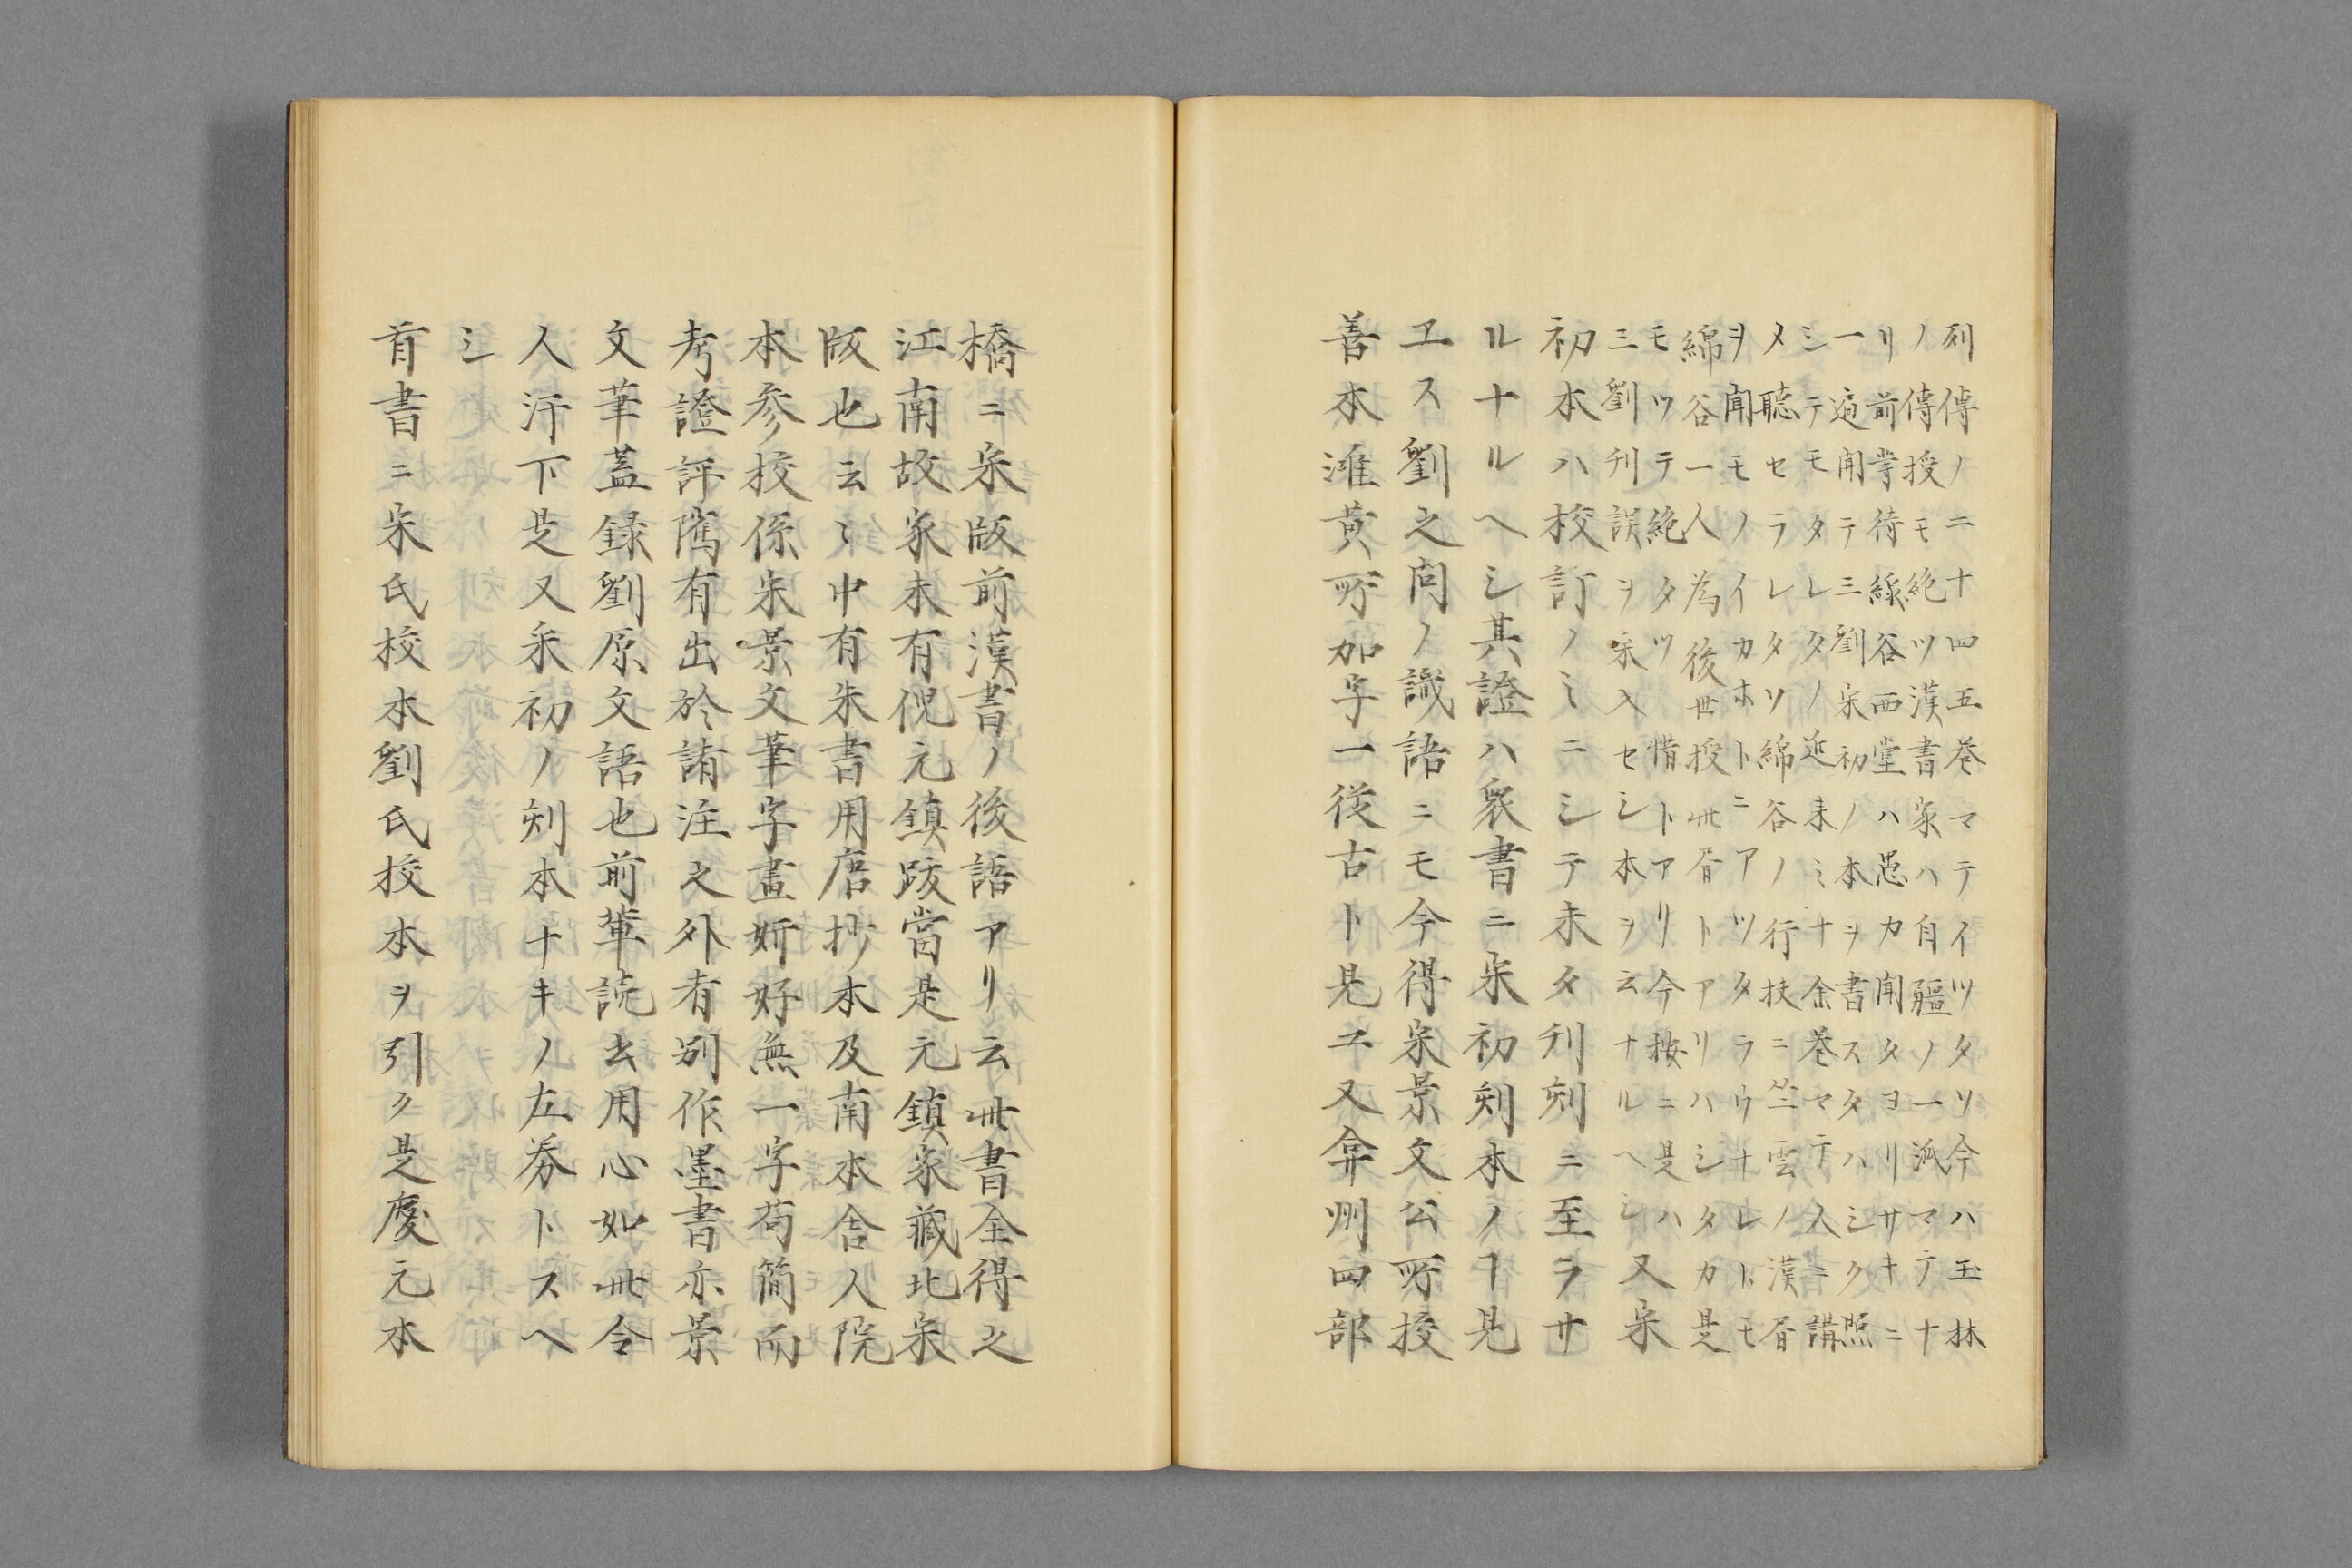 列傳ノ二十四五巻マテイツタソ今ハ玉林
ノ傳授モ絶ツ漢書家ハ自彊ノ一派マテナ
リ前掌待綿谷西堂ハ愚カ聞タヨリサキニ
一遍開テ三劉宋初ノ本ヲ書スタハシク照
シテモタレタノ近来ミナ余巻マテ入ニ講
メ聴セラレタソ綿谷ノ行扶ニ竺雲ノ漢書
ヲ聞モノイカホトニアツタラウナレトモ
綿谷一人為後世授此書トアリハシタカ是
モツテ絶タツ惜トアリ今按ニ是ハ
三劉刊誤ヲ宋入セシ本ヲ云ナルヘシ 又宋
初本ハ校訂ノミニシテ未タ刊刻ニ至ラサ
ルナルヘシ其證ハ衆書ニ宋初刻本ノヿ見
ヱス劉之問ノ識語ニモ今得宋景文公所校
善本滩黄所加字一從古ト見エ又弇州四部
橋ニ宋版前漢書ノ後語アリ云此書全得之
江南故家末有倪元鎮跋當是元鎮家藏北宋
版也云〻中有朱書用唐抄本及南本舎人院
本参校係宋景文筆字畫妍好無一字苟簡而
考證評隲有出於諸注之外者別作墨書亦景
文筆蓋録劉原文語也前輩読書用心如此令
人汗下是又宋初ノ刻本ナキノ左券トスヘ
シ
首書ニ宋氏校本劉氏校本ヲ引ク是慶元本